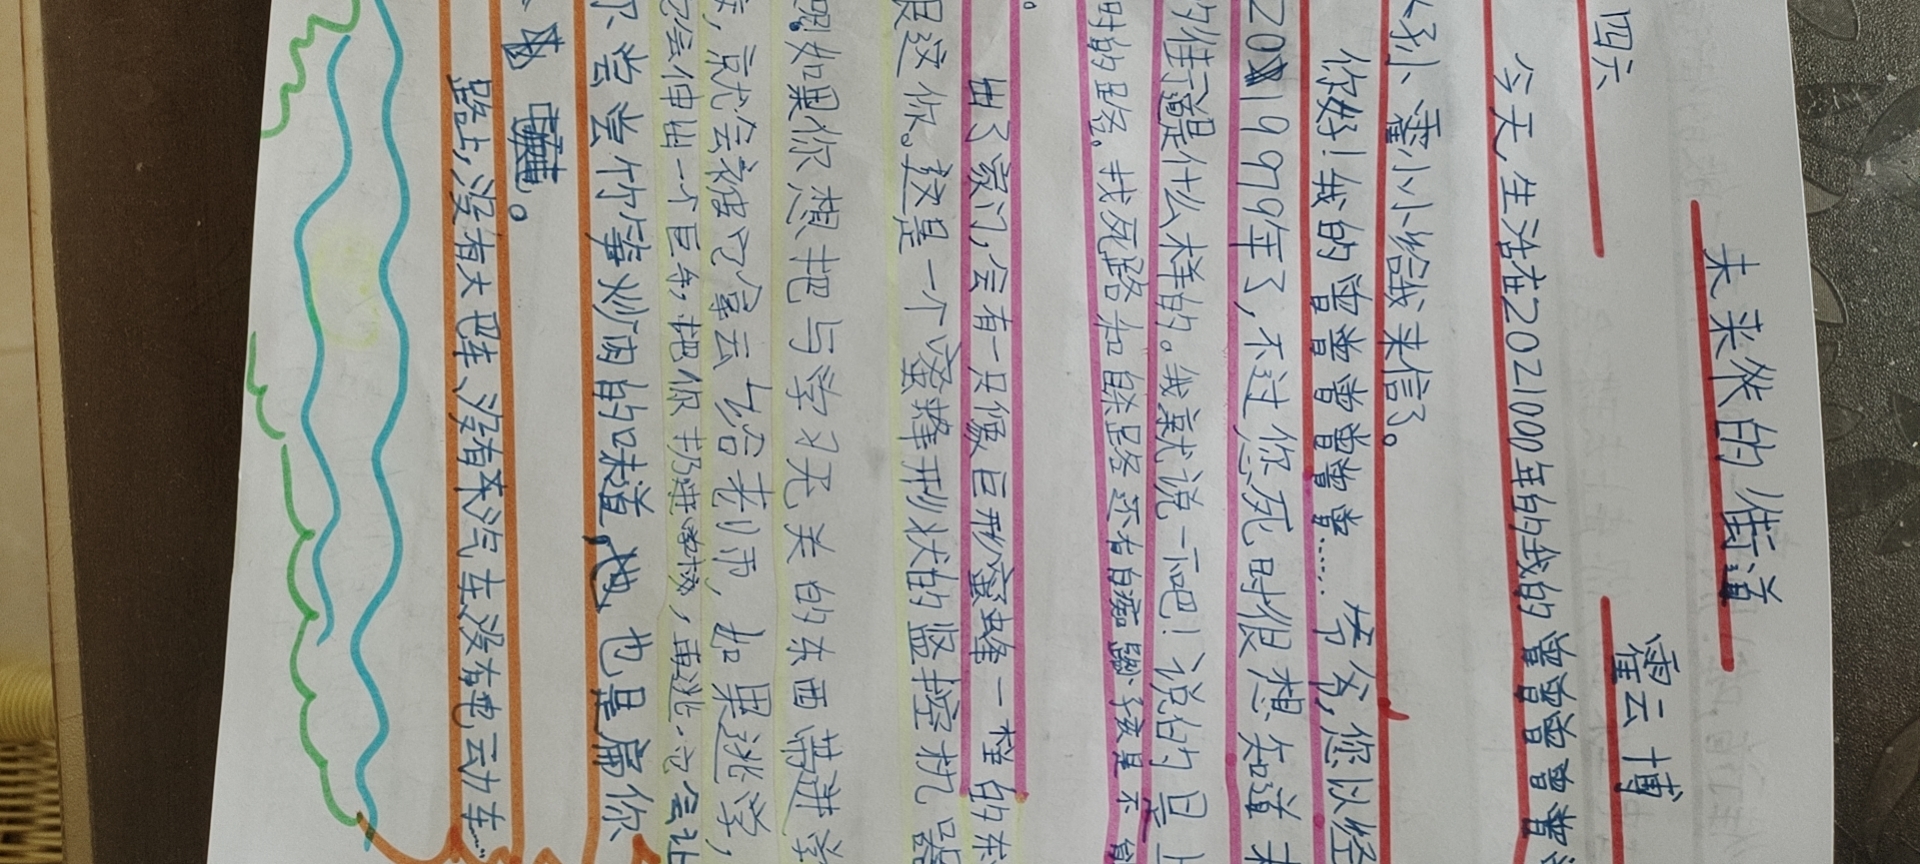 未来的街道
四六 霍云博
今天,生活在2021000年的的我的曾曾曾曾曾
孙小霍小小给我来信了。
你好!我的曾曾曾曾曾曾曾……爷爷,您以经
201979年了,不过您死时很想知道未
的街道是什么样的。我就说一下吧!说怕的是上
时的路。找死路和自杀路还有白痴路
出了家门,会有一只像巨形蜜蜂一样的东
跟这你。这是一个蜜蜂形状的监控机器
如果你想把与学习无关的东西带进学
,就会被它拿去给老师,如果逃学,
它会伸出一个巨手,把你扔进学校,再逃,它会让
你尝尝竹笋炒肉的味道,也是扁你
。
路上,没有大巴车、没有汽车、没有电动车……